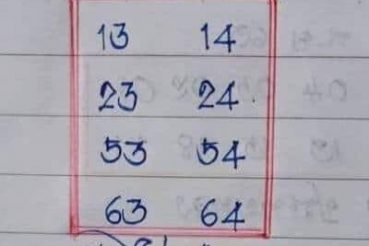 13 14
23 24
53 54
63 64